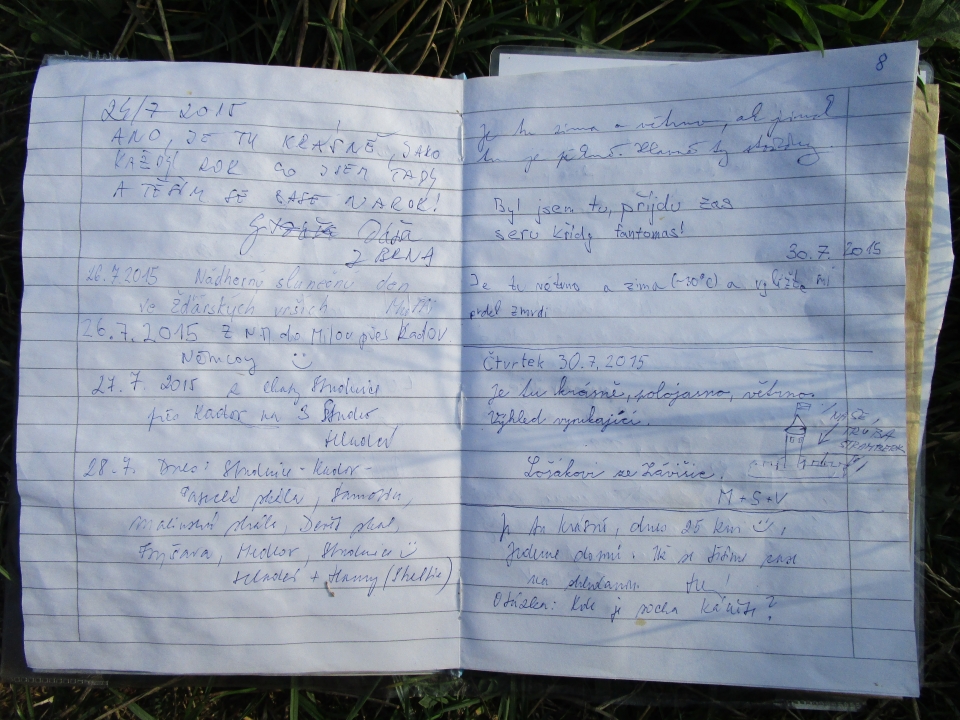 24/7 2015
ANO, JE TU KRÁSNĚ, JAKO
KAŽDÝ ROK CO JSEM TADY
A TĚŠÍM SE ZASE NAROK!
Z BRNA
26.7.2015 Nádherný slunečný den
ve Žďárských vrších
26.7.2015 Z NM do Milov přes Kadov
Němcovy
27.7. 2015 z chaty Studnice
přes Kadov na 3 Studně
28.7. Dnes: Studnice - Kadov -
Pasecká skála, Samotín,
Malínská skála, Dráteničky
Fryšava, Medlov, Studnice
+ Hanny (Sheltie)
8
Je tu zima a větrno, ale jinak
tu je pěkně.
Byl jsem tu, přijdu zas
seru křídy fantomas!
30.7. 2015
Je tu větrno a zima (~30°C) a vyližte mi
prdel zmrdi
Čtvrtek 30.7.2015
Je tu krásně, polojasno, větrno.
Výhled vynikající.
TRUBA
ŠTRAMBERK
M+S+V
Je tu krásně, dnes 25 km
Jedeme domů. Už se těšíme zase
na
Otázka: Kde je socha